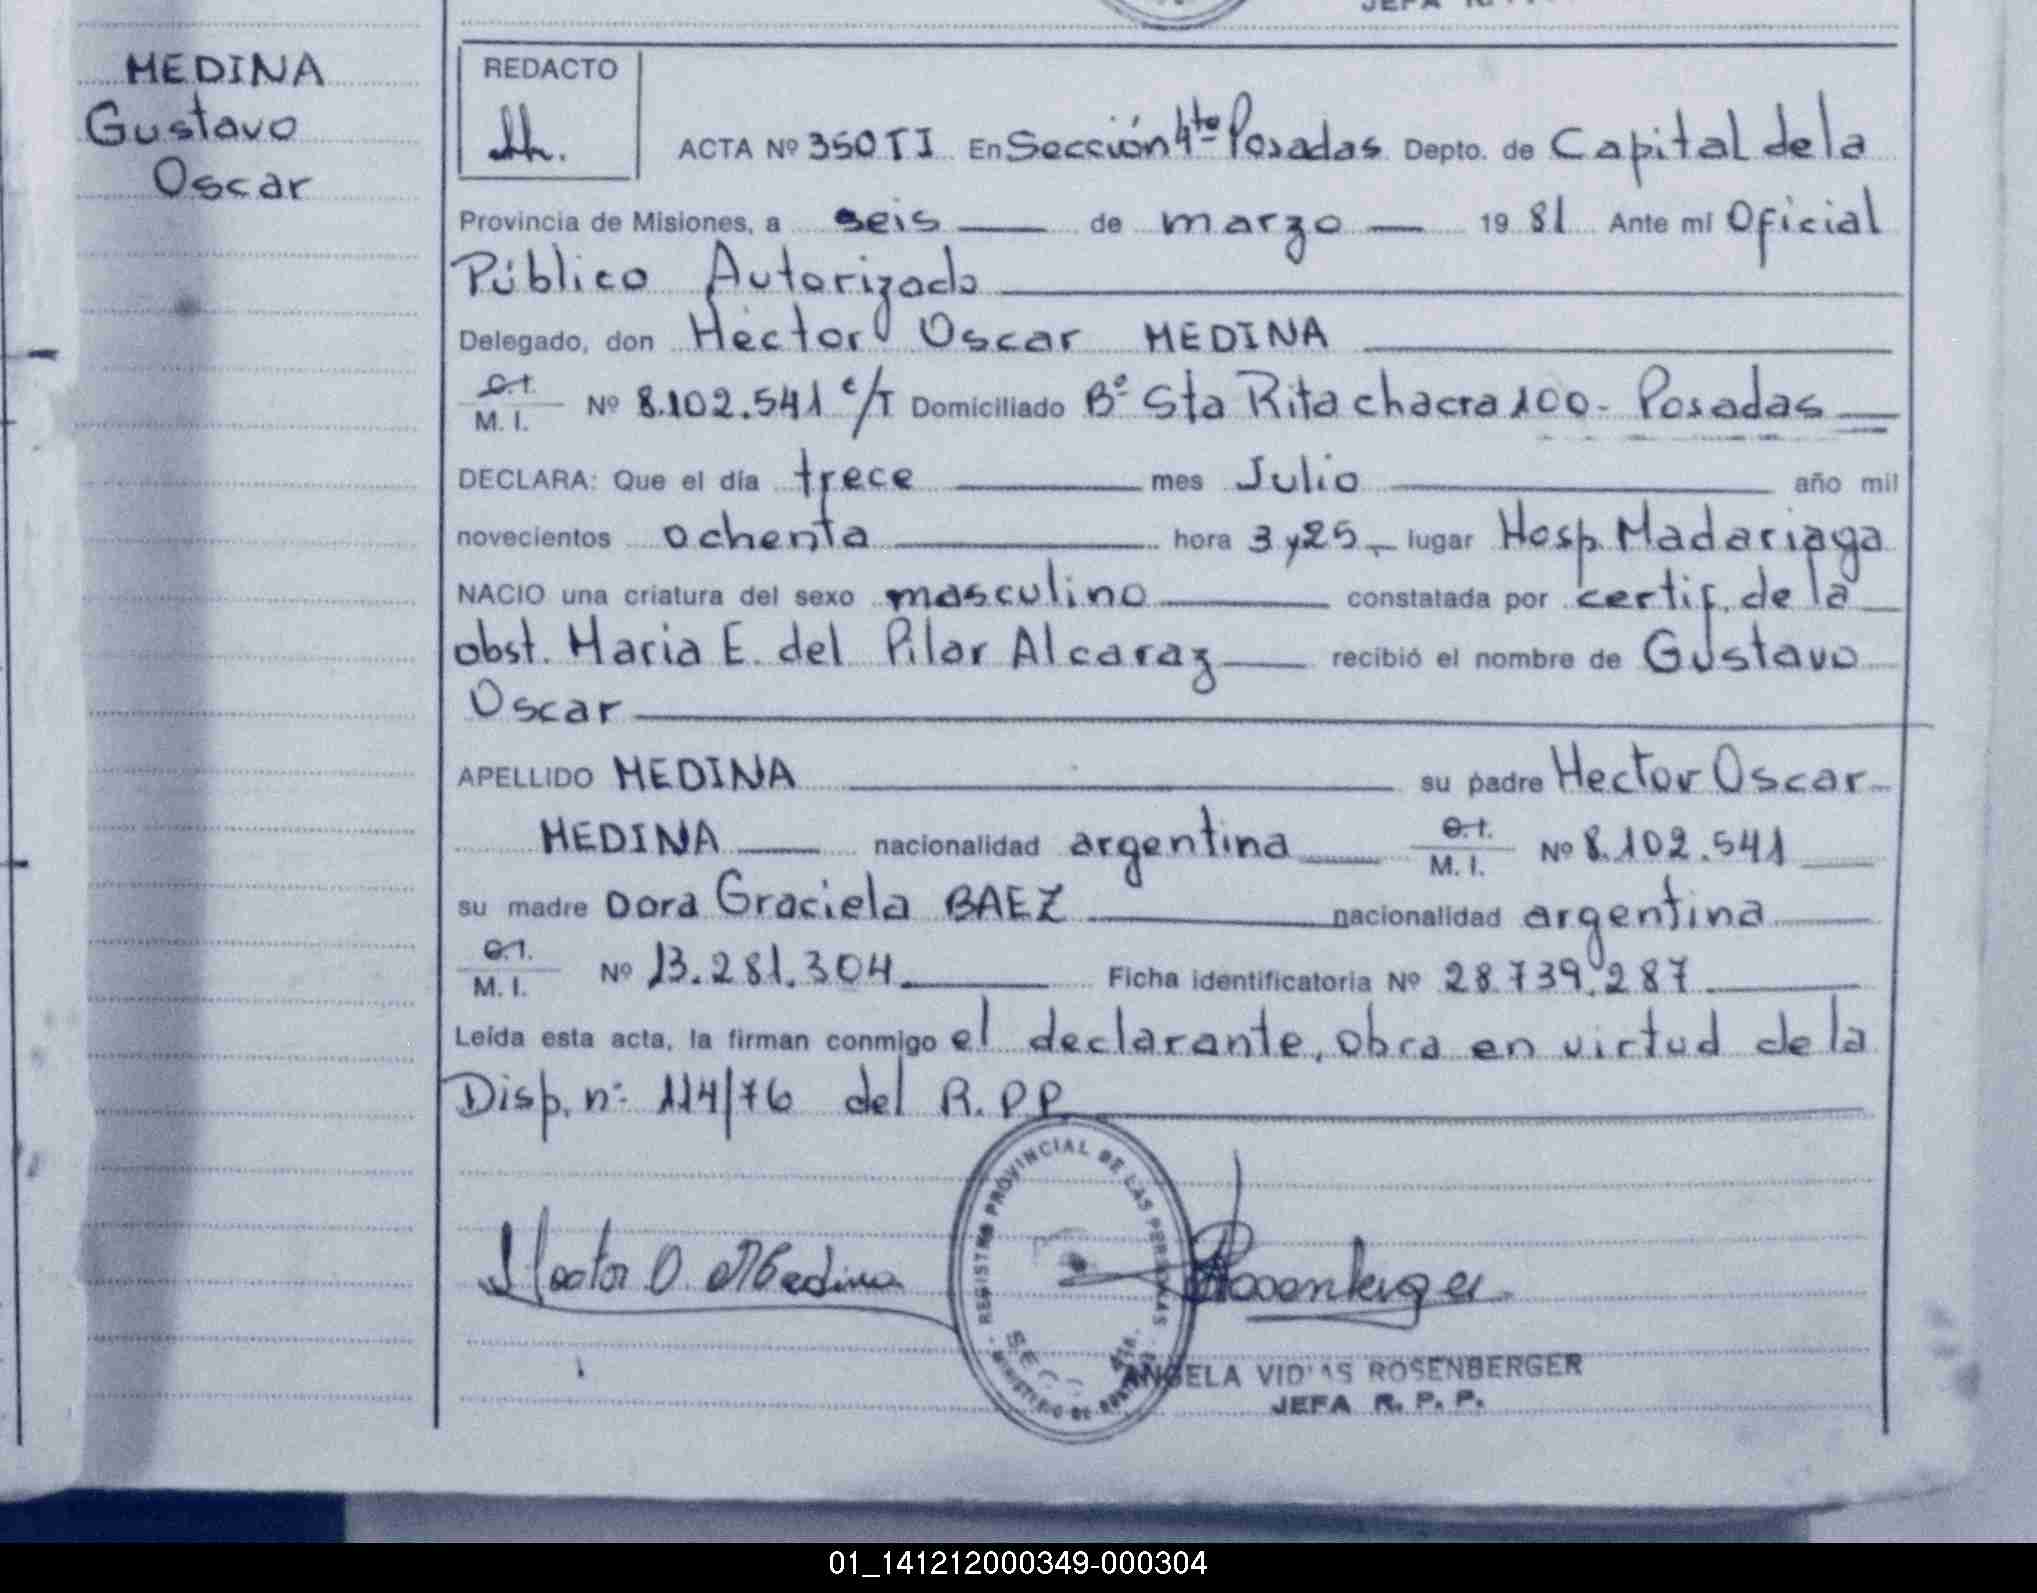 MEDINA
Gustavo
Oscar
REDACTO
ACTA Nº 350 TI En Sección 4ta Posadas Depto. de Capital de la
Provincia de Misiones, a seis de marzo 19 81 Ante mi Oficial
Público Autorizado
Delegado, don Héctor Oscar MEDINA
C.I.
M. I. Nº 8.102.541 c/T Domiciliado Bº Sta Rita chacra 100- Posadas
DECLARA: Que el día trece mes Julio año mil
novecientos ochenta hora 3 y 25 lugar Hosp. Madariaga
NACIO una criatura del sexo masculino constatada por certif. de la
obst. Maria E. del Pilar Alcaraz recibió el nombre de Gustavo
Oscar
APELLIDO MEDINA su padre Hector Oscar
MEDINA nacionalidad argentina C.I. M. I. Nº 8.102.541
su madre Dora Graciela BAEZ nacionalidad argentina
C.I.
M. I. Nº 13.281.304 Ficha identificatoria Nº 28739.287
Leída esta acta, la firman conmigo el declarante, obra en virtud de la
Disp. nº 114/76 del R.P.P
REGISTRO PROVINCIAL DE LAS PERSONAS
MINISTERIO DE
Hector O. Medina
Rosenberger
ANGELA VIDAS ROSENBERGER
JEFA R. P. P.
01_141212000349-000304